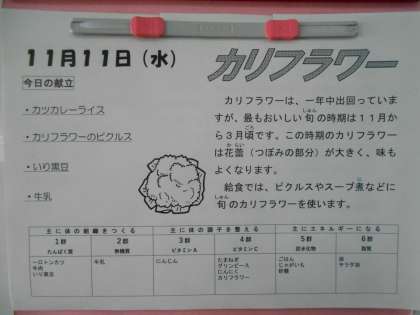 11月11日（水）
カリフラワー
今日の献立
・カツカレーライス
・カリフラワーのピクルス
・いり黒豆
・牛乳
カリフラワーは、一年中出回っていま
すが、最もおいしい旬の時期は１１月か
しゅん
ら３月頃です。この時期のカリフラワー
ごろ
は花蕾（つぼみの部分）が大きく、味も
からい
よくなります。
給食では、ピクルスやスープ煮などに
に
旬のカリフラワーを使います。
しゅん
主に体の組織をつくる 主に体の調子を整える 主にエネルギーになる
1群 2群 3群 4群 5群 6群
たんぱく質 無機質 ビタミンA ビタミンC 炭水化物 脂質
一口トンカツ 牛乳 にんじん たまねぎ ごはん 油
牛肉 グリンピース じゃがいも サラダ油
いり黒豆 にんにく 砂糖
カリフラワー